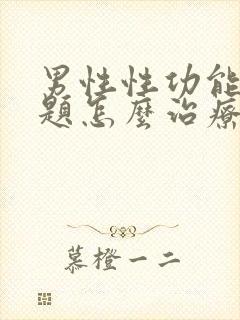 男性性功能
題怎麼治療
慕橙一二